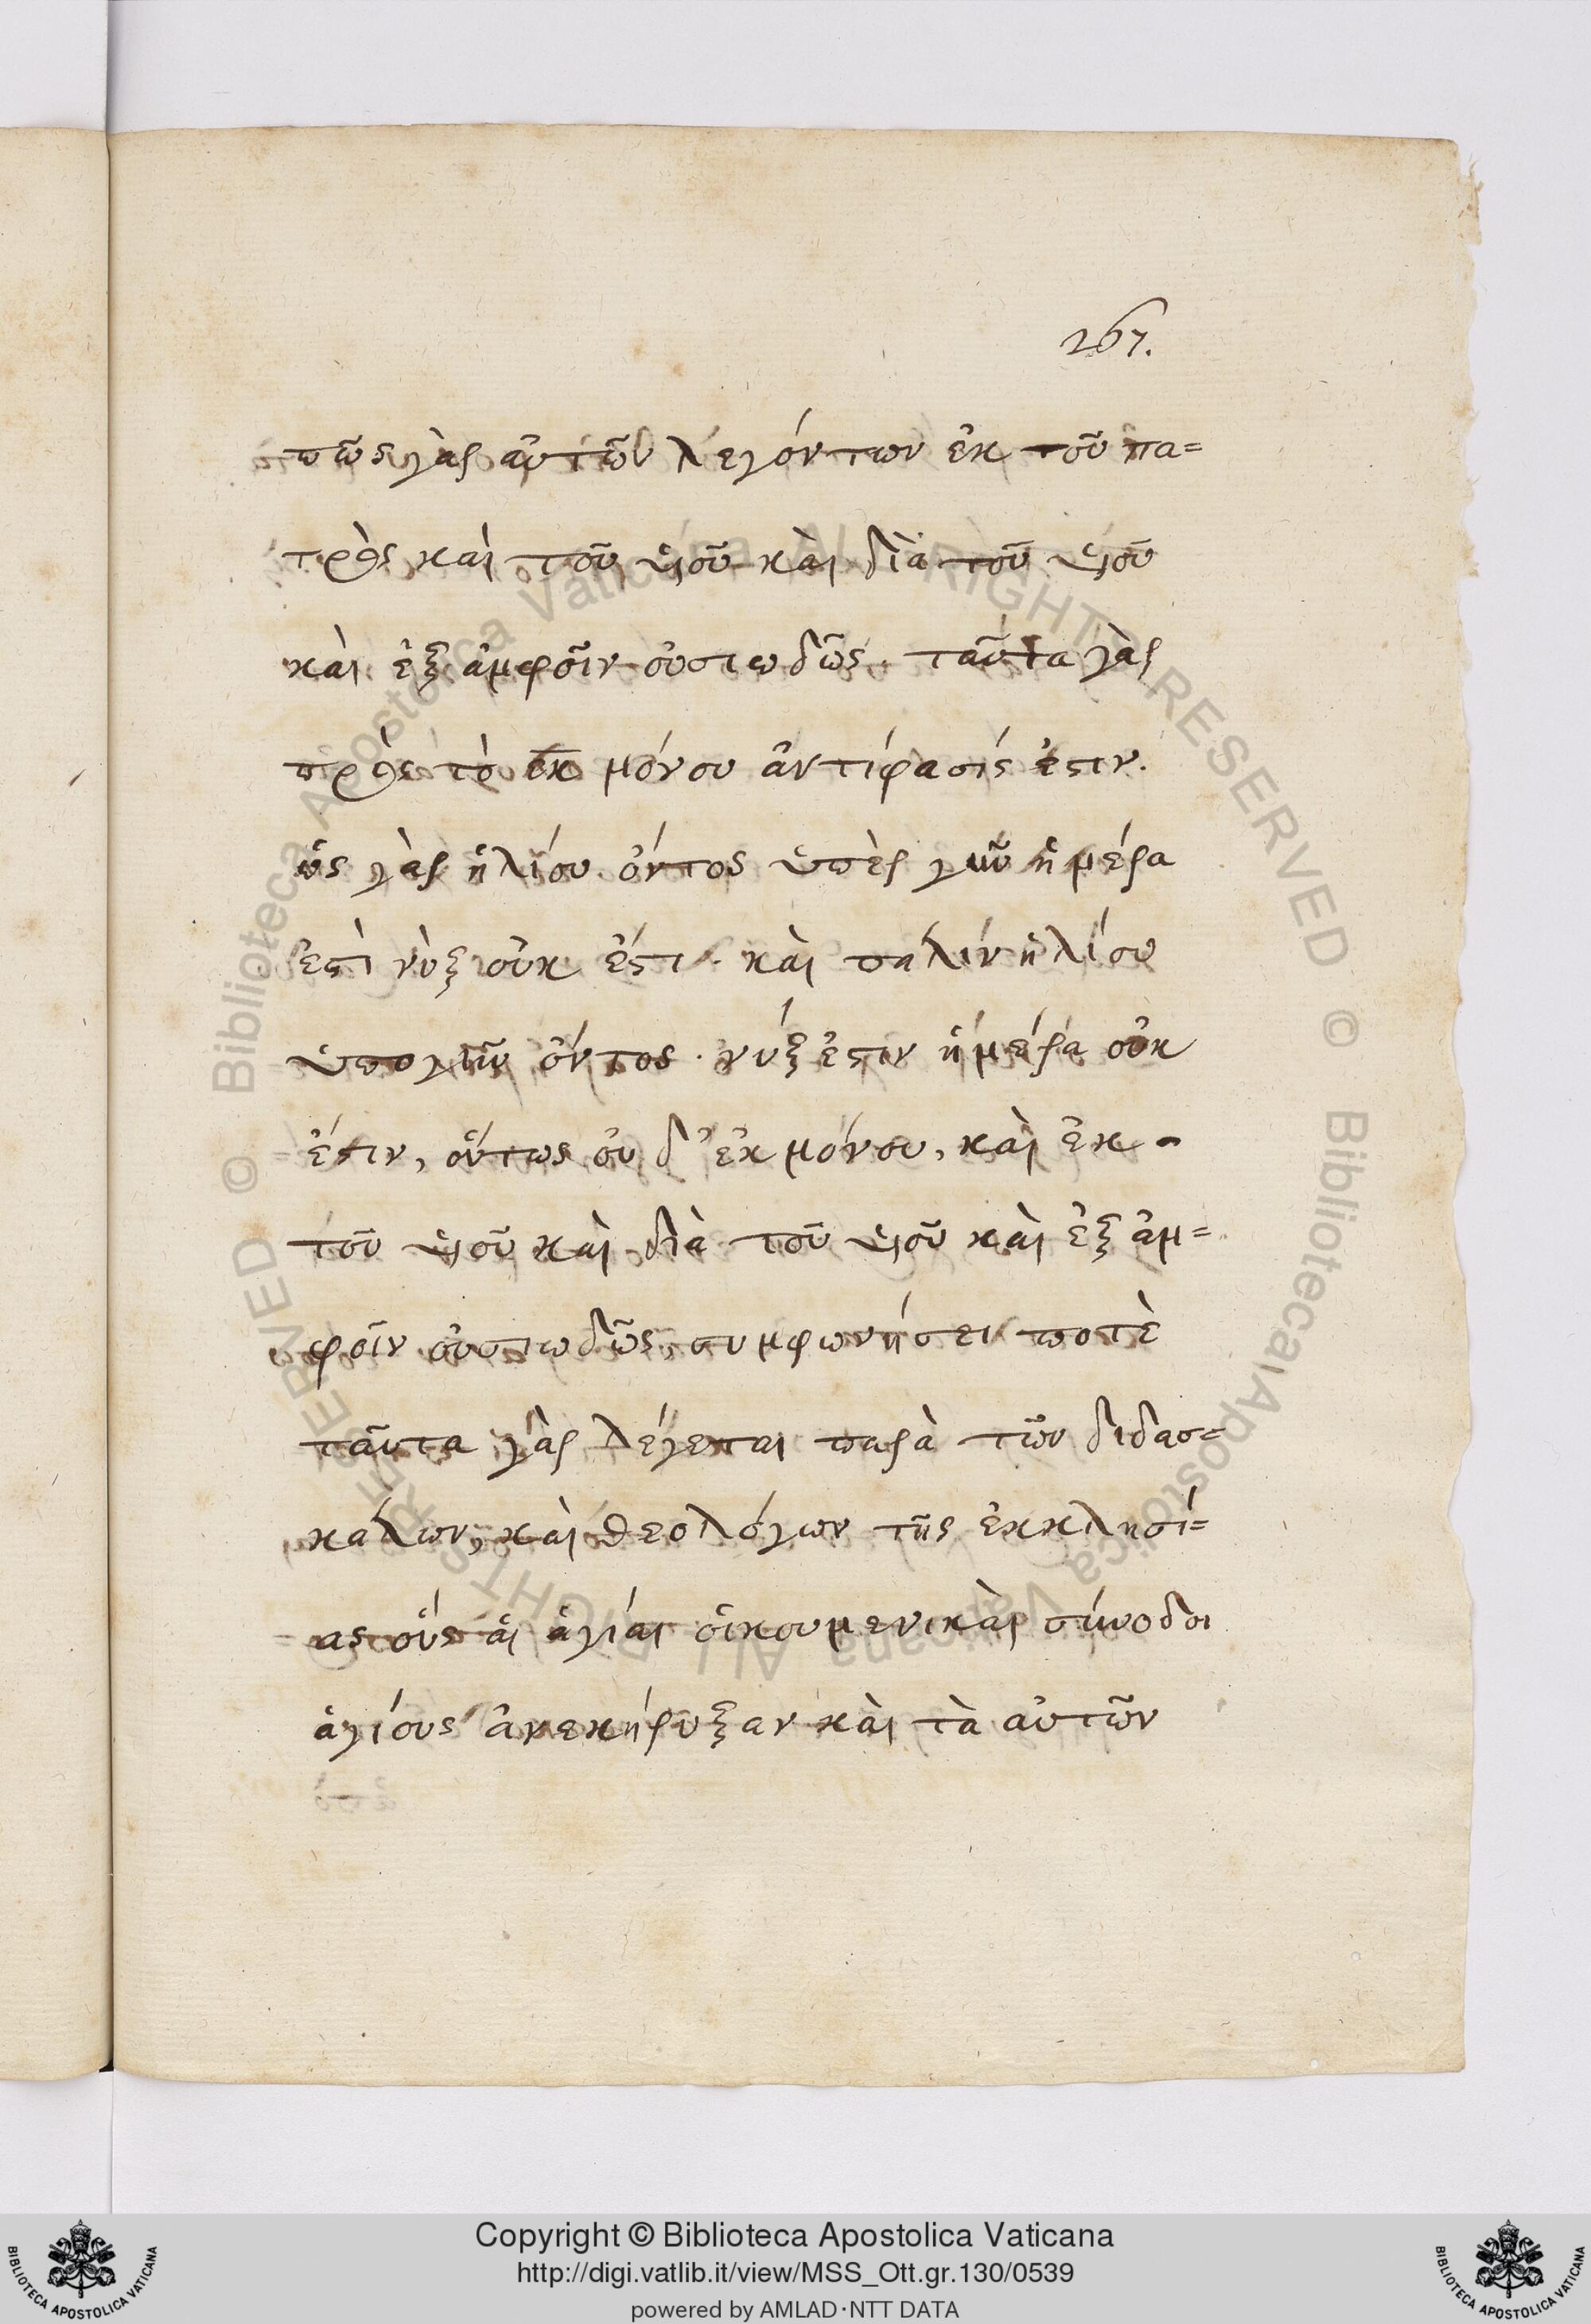 267.
πῶς γὰρ αὐτῶν λεγόντων ἐκ τοῦ πα=
τρὸς καὶ τοῦ υἱοῦ καὶ διὰ τοῦ υἱοῦ
καὶ ἐξ ἀμφοῖν οὐσιωδῶς. ταῦτα γὰρ
πρὸς τὸ ἐκ μόνου ἀντίφασίς ἐστιν.
ὡς γὰρ ἡλίου ὄντος ὑπὲρ γῆν ἡμέρα
ἐστὶ νὺξ οὐκ ἔστι. καὶ πάλιν ἡλίου
ὑπογῆν ὄντος. νύξ ἐστιν ἡμέρα οὐκ
ἔστιν, οὕτως οὐδ' ἐκ μόνου, καὶ ἐκ
τοῦ υἱοῦ καὶ διὰ τοῦ υἱοῦ καὶ ἐξ ἀμ=
φοῖν οὐσιωδῶς, συμφωνήσει ποτὲ
ταῦτα γὰρ λέγεται παρὰ τῶν διδασ=
κάλων, καὶ θεολόγων τῆς ἐκκλησί=
ας οὓς αἱ ἁγίαι οἰκουμενικαὶ σύνοδοι
ἁγίους ἀνεκήρυξαν καὶ τὰ αὐτῶν
© Biblioteca Apostolica Vaticana ALL RIGHTS RESERVED
© Biblioteca Apostolica Vaticana ALL RIGHTS RESERVED
Copyright © Biblioteca Apostolica Vaticana
http://digi.vatlib.it/view/MSS_Ott.gr.130/0539
powered by AMLAD·NTT DATA
BIBLIOTECA APOSTOLICA VATICANA
BIBLIOTECA APOSTOLICA VATICANA